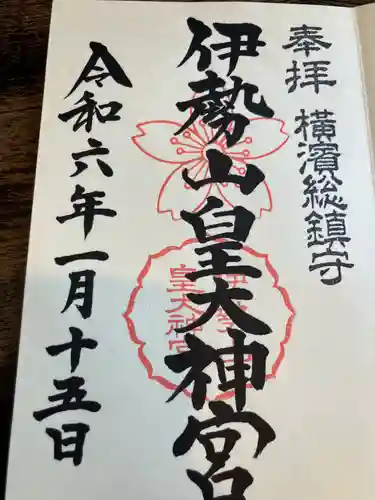 奉拝 橫濱総鎮守
伊勢山皇大神宮
令和六年一月十五日